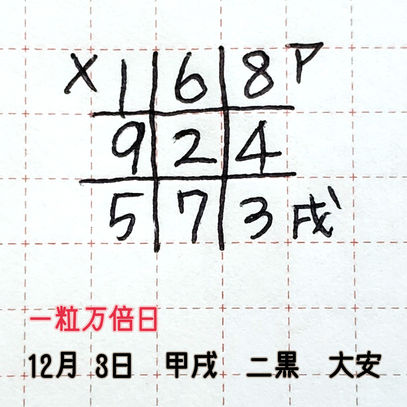 ×1 6 8ア
9 2 4
5 7 3戌
一粒万倍日
12月 3日 甲戌 二黒 大安